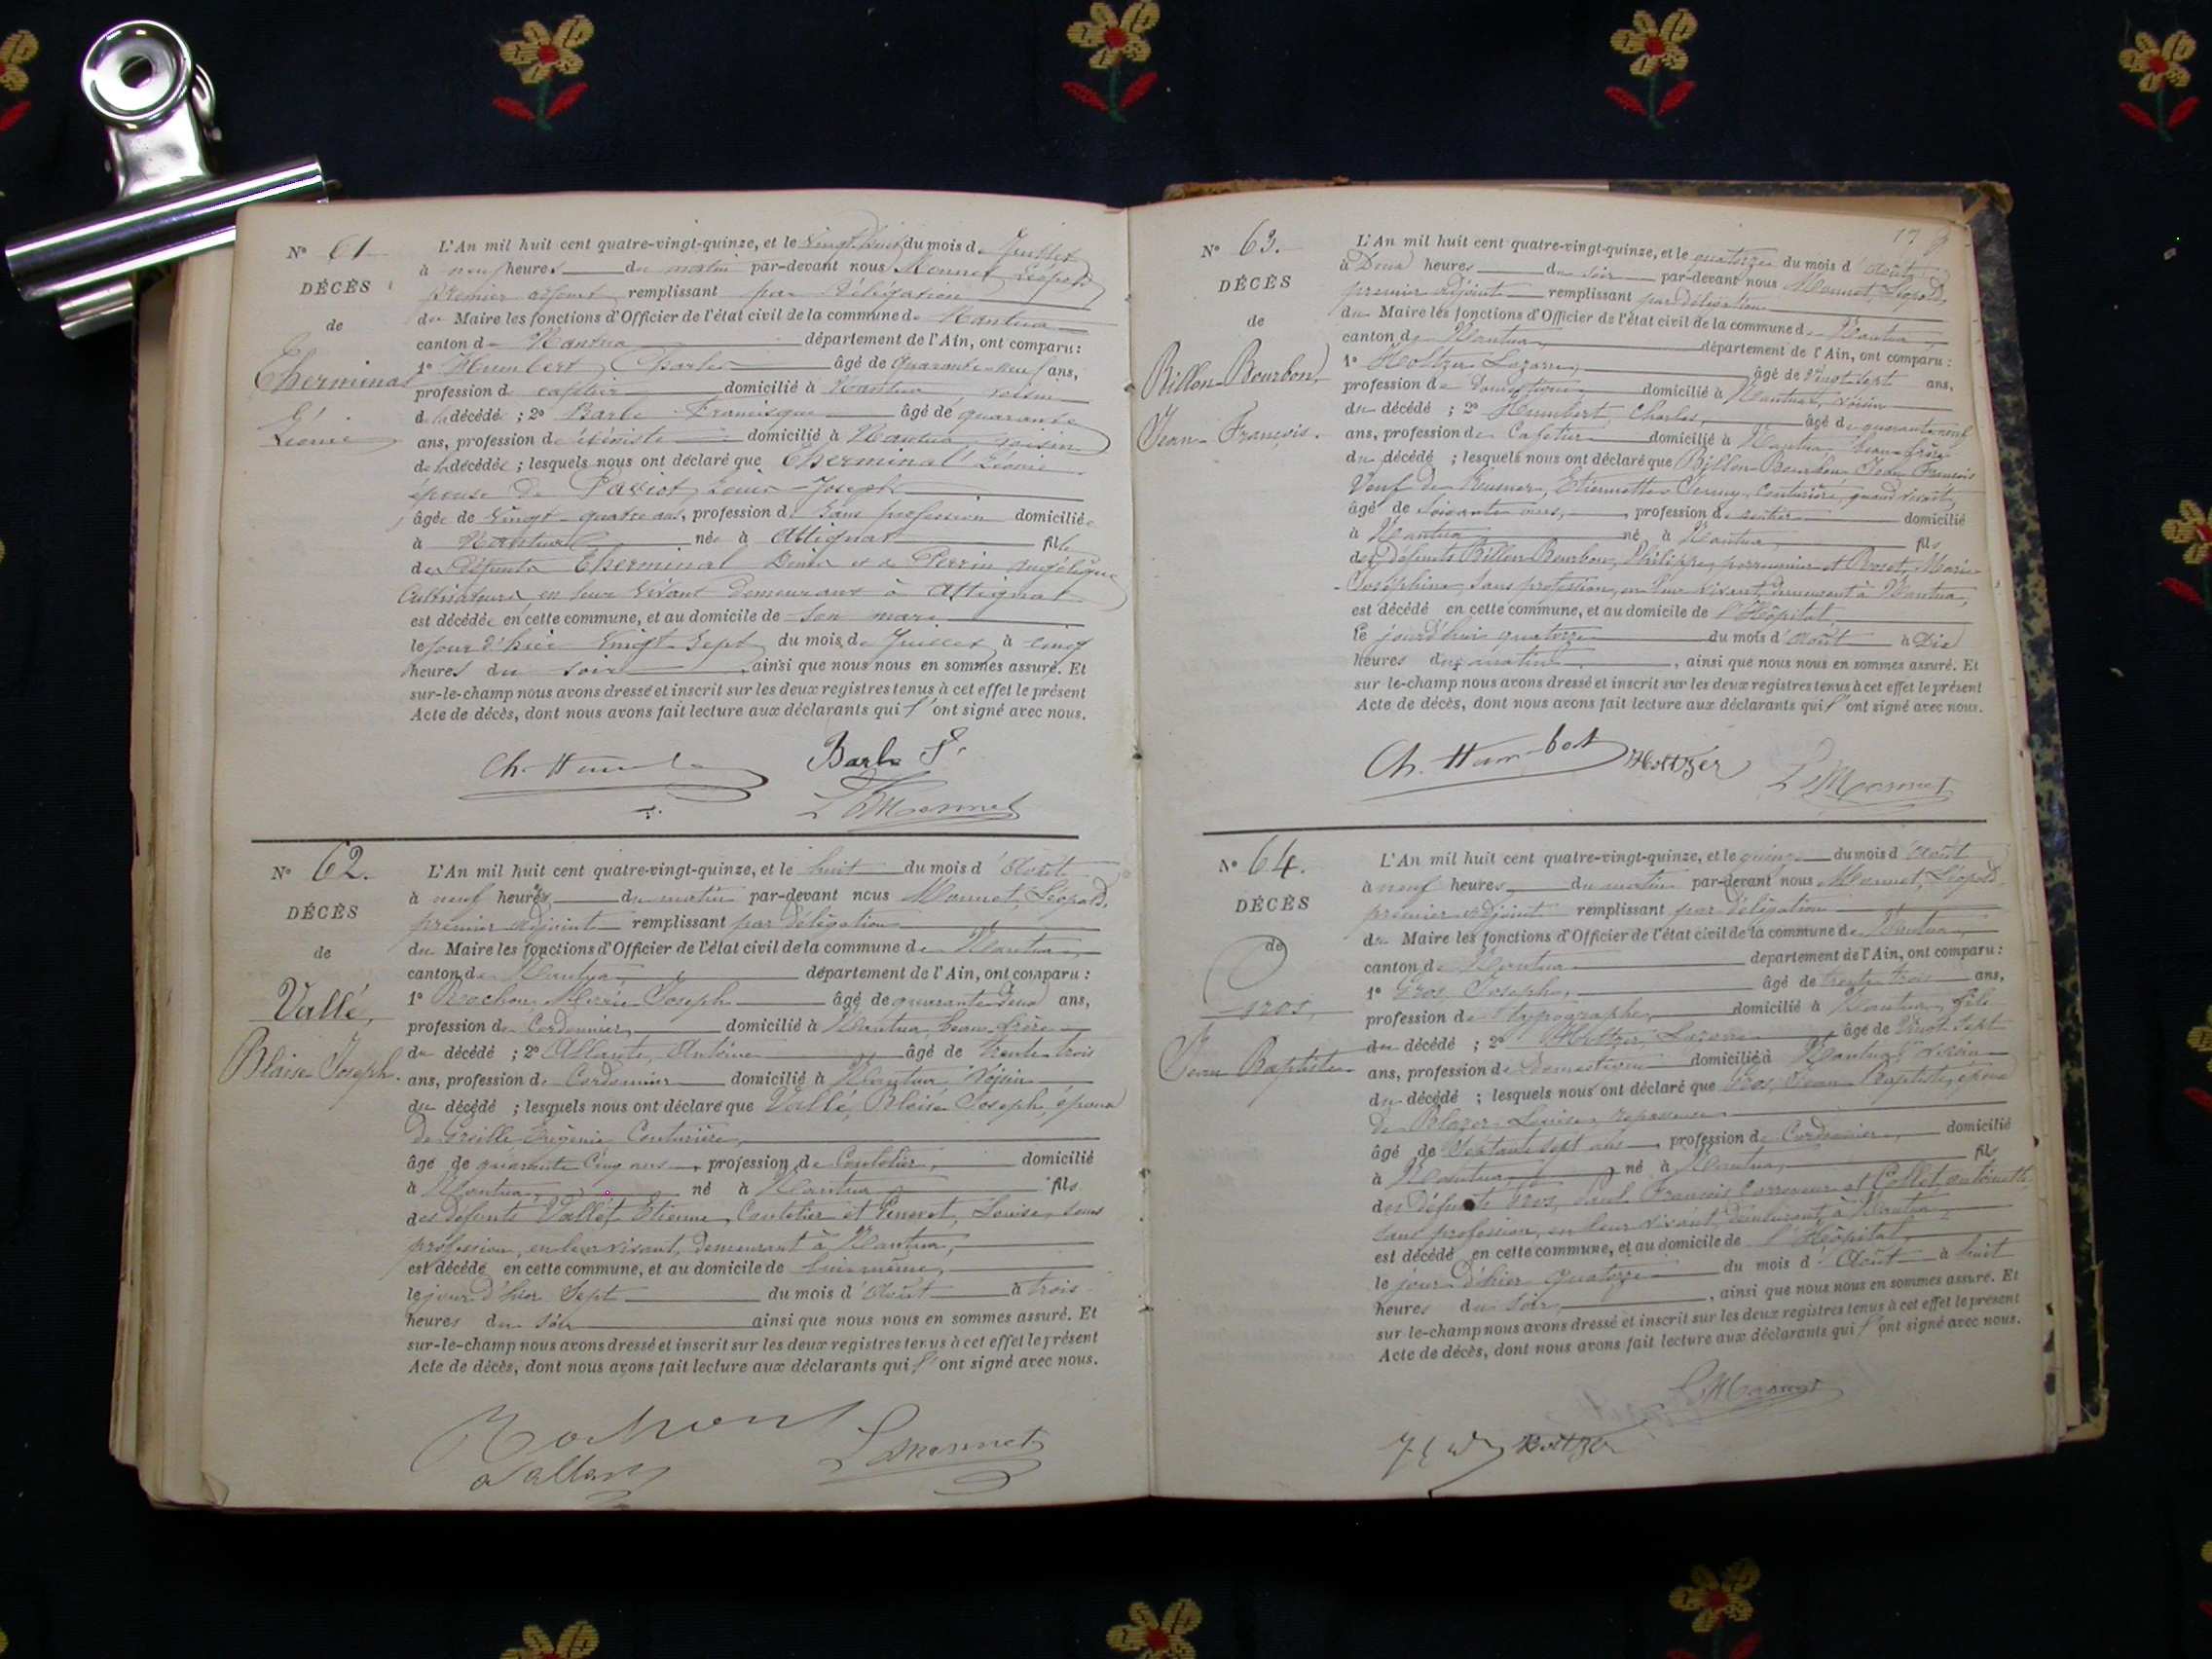 N° 61
DÉCÈS
de
Therminal
Léonie
L'An mil huit cent quatre-vingt-quinze, et le vingt huit du mois de Juillet
à neuf heures du matin par-devant nous Monnet Léopold
premier adjoint remplissant par délégation
du Maire les fonctions d'Officier de l'état civil de la commune de Nantua
canton de Nantua département de l'Ain, ont comparu :
1° Humbert, Charles âgé de quarante-neuf ans,
profession de cafetier domicilié à Nantua voisin
de la décédée ; 2° Barbe Francisque âgé de quarante
ans, profession d' ébéniste domicilié à Nantua voisin
de la décédée ; lesquels nous ont déclaré que Therminal Léonie
épouse de Louis-Joseph
âgée de vingt-quatre ans, profession de sans profession domiciliée
à Nantua née à Attignat fille
des défunts Therminal Denis et de Perrin Angélique
Cultivateurs en leur vivant demeurant à Attignat
est décédée en cette commune, et au domicile de son mari
le jour d'hier vingt-sept du mois de Juillet à cinq
heures du soir, ainsi que nous nous en sommes assuré. Et
sur-le-champ nous avons dressé et inscrit sur les deux registres tenus à cet effet le présent
Acte de décès, dont nous avons fait lecture aux déclarants qui l'ont signé avec nous.
Barbe F.
L Monnet
N° 62.
DÉCÈS
de
Vallé,
Blaise Joseph.
L'An mil huit cent quatre-vingt-quinze, et le huit du mois d'Août
à neuf heures, du matin par-devant nous Monnet, Léopold,
premier adjoint remplissant par délégation
du Maire les fonctions d'Officier de l'état civil de la commune de Nantua,
canton de Nantua, département de l'Ain, ont comparu :
1° Rochon, Marie Joseph âgé de quarante deux ans,
profession de Cordonnier, domicilié à Nantua beau-frère
du décédé ; 2° Antoine âgé de trente-trois
ans, profession de Cordonnier domicilié à Nantua, voisin
du décédé ; lesquels nous ont déclaré que Vallé, Blaise Joseph, époux
de Eugénie Couturière,
âgé de quarante cinq ans, profession de domicilié
à Nantua, né à Nantua, fils
des défunts Vallet Etienne, et Louise, sans
profession, en leur vivant, demeurant à Nantua,
est décédé en cette commune, et au domicile de lui-même,
le jour d'hier sept du mois d'Août à trois
heures du soir ainsi que nous nous en sommes assuré. Et
sur-le-champ nous avons dressé et inscrit sur les deux registres tenus à cet effet le présent
Acte de décès, dont nous avons fait lecture aux déclarants qui l'ont signé avec nous.
Rochon
L Monnet
17
N° 63.
DÉCÈS
de
Billon-Bourbon,
Jean-François.
L'An mil huit cent quatre-vingt-quinze, et le quatorze du mois d'Août
à Deux heures du soir par-devant nous Monnet, Léopold,
premier adjoint remplissant par délégation
du Maire les fonctions d'Officier de l'état civil de la commune de Nantua,
canton de Nantua, département de l'Ain, ont comparu :
1° Holtzer Lazare, âgé de vingt-sept ans,
profession de Domestique domicilié à Nantua, voisin
du décédé ; 2° Humbert Charles, âgé de quarante-neuf
ans, profession de Cafetier domicilié à Nantua beau-frère
du décédé ; lesquels nous ont déclaré que Billon-Bourbon Jean François
Veuf de Etiennette Jenny, Couturière, quand vivait,
âgé de soixante ans, profession de rentier domicilié
à Nantua né à Nantua, fils
des défunts Billon-Bourbon, Philippe, et Marie
Joséphine, sans profession, en leur vivant, demeurant à Nantua,
est décédé en cette commune, et au domicile de l'Hôpital,
le jourd'hui quatorze du mois d'Août à Dix
heures du matin, ainsi que nous nous en sommes assuré. Et
sur le-champ nous avons dressé et inscrit sur les deux registres tenus à cet effet le présent
Acte de décès, dont nous avons fait lecture aux déclarants qui l'ont signé avec nous.
Ch. Humbert Holtzer L Monnet
N° 64.
DÉCÈS
de
Gros,
Jean Baptiste
L'An mil huit cent quatre-vingt-quinze, et le quinze du mois d'Août
à neuf heures, du matin par-devant nous Monnet, Léopold
premier adjoint remplissant par délégation
du Maire les fonctions d'Officier de l'état civil de la commune de Nantua,
canton de Nantua département de l'Ain, ont comparu :
1° Gros, Joseph, âgé de trente trois ans,
profession de typographe, domicilié à Nantua, fils
du décédé ; 2° Holtzer, Lazare âgé de vingt sept
ans, profession de Domestique domicilié à Nantua voisin
du décédé ; lesquels nous ont déclaré que Gros, Jean Baptiste, époux
de Louise, repasseuse
âgé de Septante sept ans, profession de Cordonnier, domicilié
à Nantua, né à Nantua, fils
des défunts Gros, François et Collet Antoinette
sans profession, en leur vivant, demeurant à Nantua,
est décédé en cette commune, et au domicile de l'Hôpital,
le jour d'hier quatorze du mois d'Août à huit
heures du soir, ainsi que nous nous en sommes assuré. Et
sur le-champ nous avons dressé et inscrit sur les deux registres tenus à cet effet le présent
Acte de décès, dont nous avons fait lecture aux déclarants qui l'ont signé avec nous.
L Monnet
Holtzer